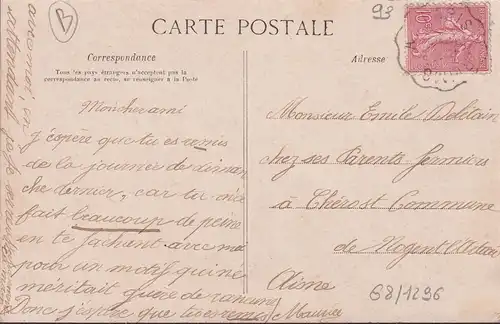 B
CARTE POSTALE
93
10c
Correspondance
Adresse
Tous les pays étrangers n'acceptent pas la
correspondance au recto, se renseigner à la Poste
Mon cher ami
J'espère que tu es remis
de la journée de diman
che dernier, car tu m'as
fait beaucoup de peine
en te fachant avec moi
pour un motif qui ne
méritait guère de rancune
Donc j'espère que tu es remis
avec moi, en
attendant
Maurice
Monsieur Emile
chez ses Parents fermiers
à Chérost Commune
de Nogent l'Artau
Aisne
G8/1296